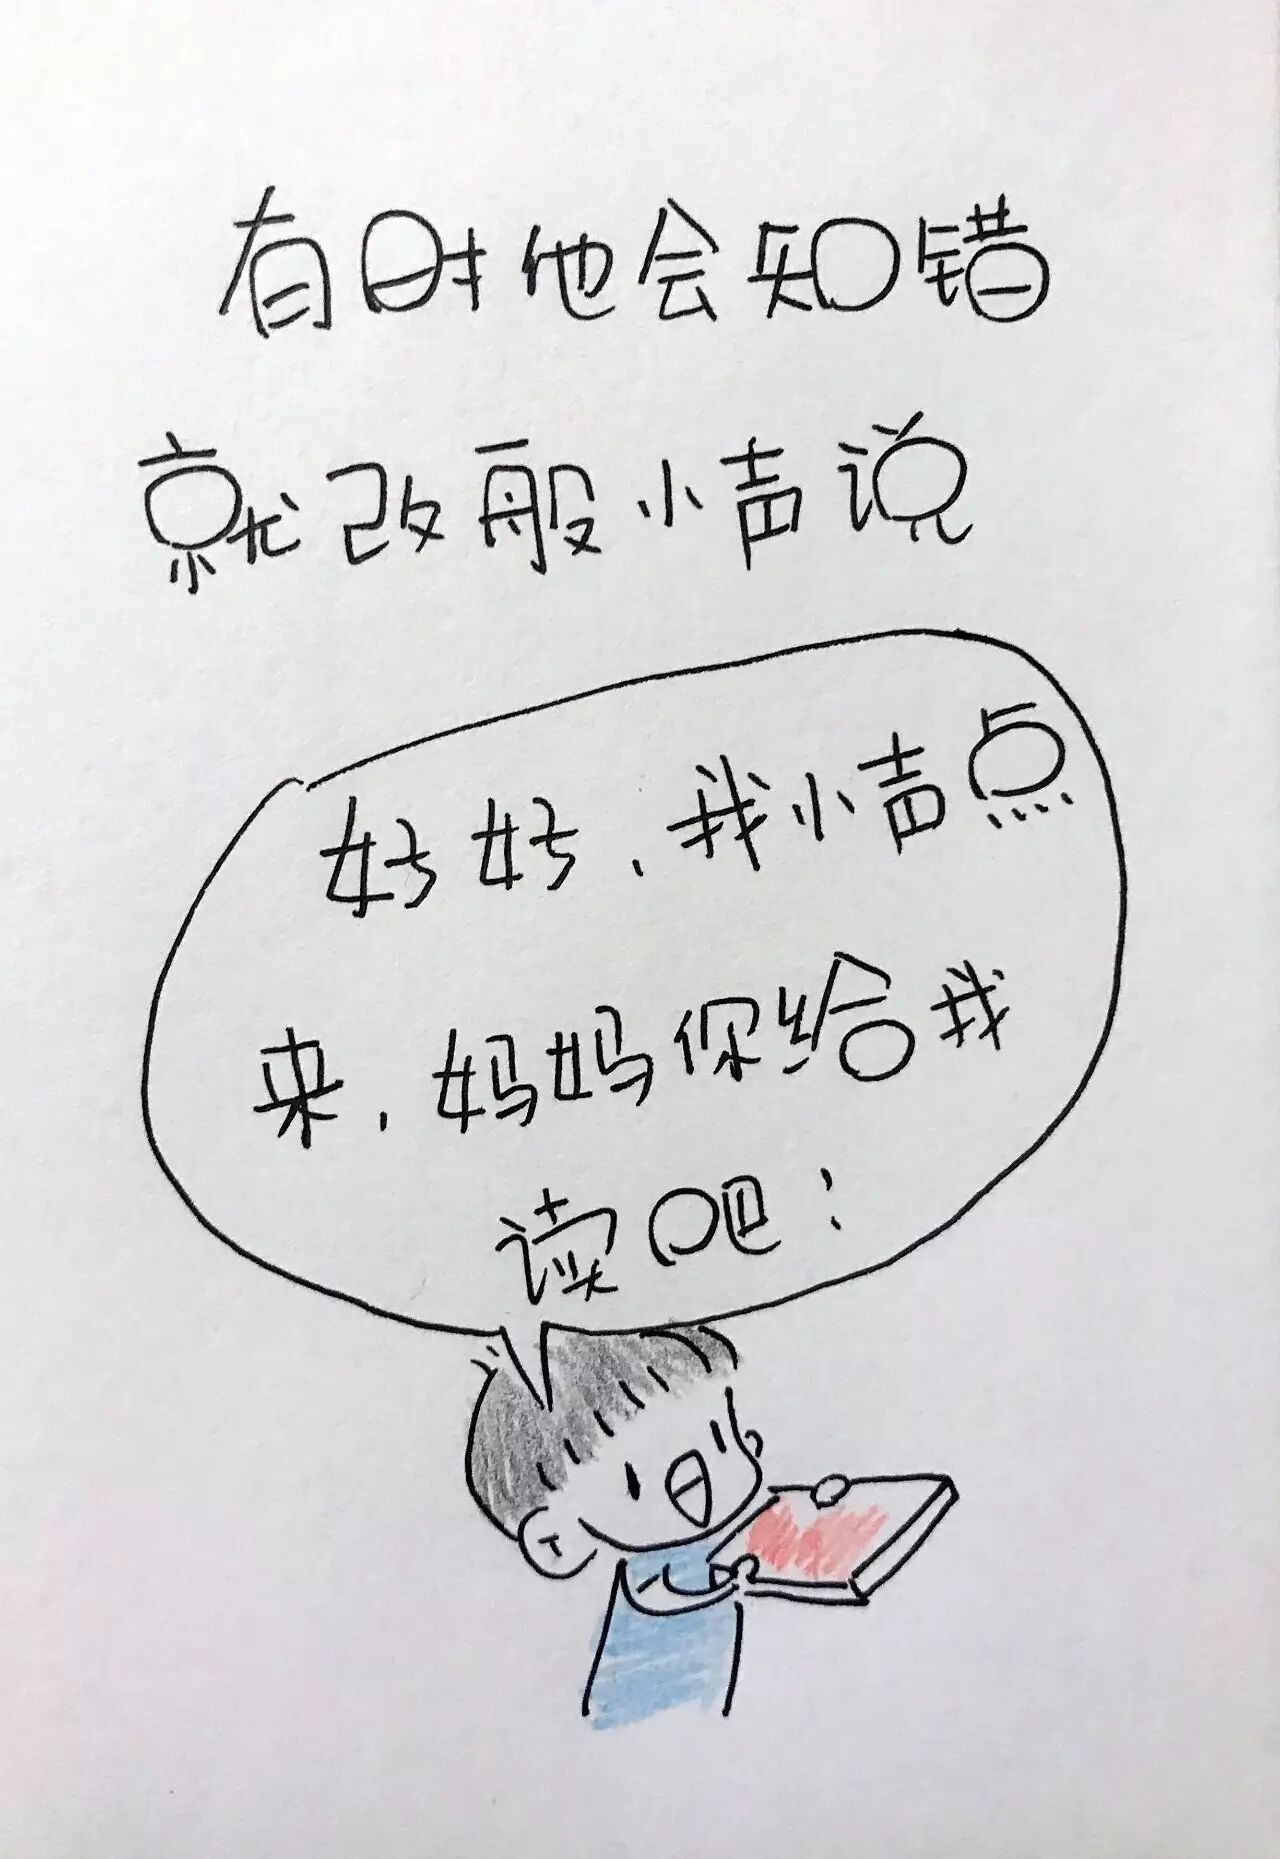 有时他会知错
就改般小声说
好好，我小声点
来，妈妈你给我
读吧！